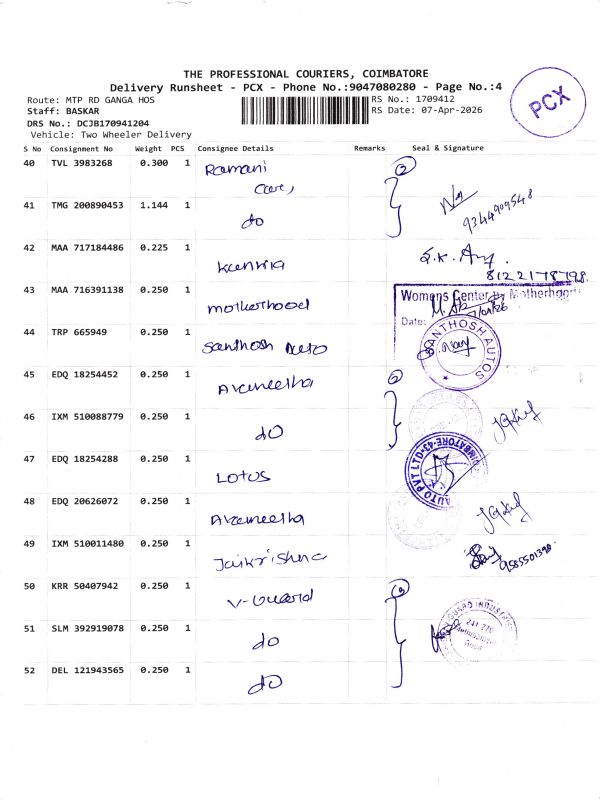 THE PROFESSIONAL COURIERS, COIMBATORE
Delivery Runsheet - PCX - Phone No.:9047080280 - Page No.:4
PCX
Route: MTP RD GANGA HOS
RS No.: 1709412
Staff: BASKAR
RS Date: 07-Apr-2026
DRS No.: DCJB170941204
Vehicle: Two Wheeler Delivery
S No Consignment No Weight PCS Consignee Details Remarks Seal & Signature
40 TVL 3983268 0.300 1 Ramani
Care,
9344909548
41 TMG 200890453 1.144 1 do
42 MAA 717184486 0.225 1
8122178798
43 MAA 716391138 0.250 1 motherhood
Womens Center by Motherhood
Date:
44 TRP 665949 0.250 1 Santhosh Auto
SANTHOSH AUTOS
45 EDQ 18254452 0.250 1 Avaneetha
46 IXM 510088779 0.250 1 do
47 EDQ 18254288 0.250 1 LOTUS
AUTO PVT LTD
48 EDQ 20626072 0.250 1 Avaneetha
49 IXM 510011480 0.250 1 Jaikrishna
50 KRR 50407942 0.250 1 V-Guard
51 SLM 392919078 0.250 1 do
52 DEL 121943565 0.250 1 do